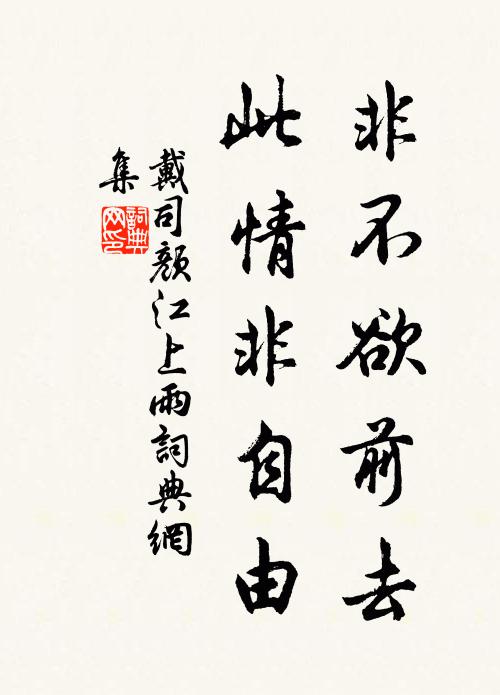 非不欲前去
此情非自由
戴司顏江上雨詞典網
集
詞典
网印